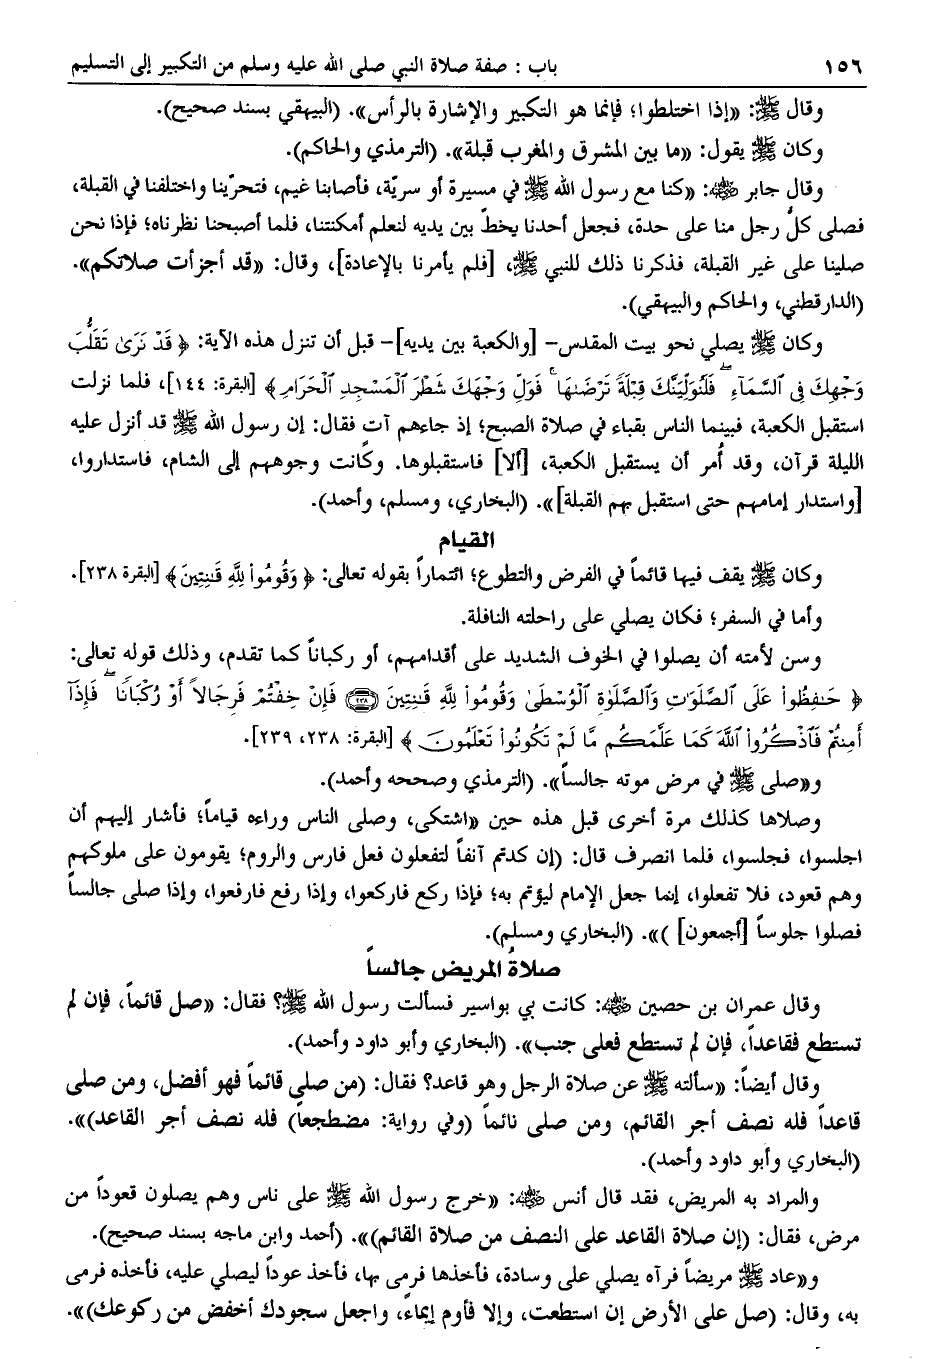 ١٥٦ باب : صفة صلاة النبي صلى الله عليه وسلم من التكبير إلى التسليم
وقال ﷺ: «إذا اختلطوا؛ فإنما هو التكبير والإشارة بالرأس». (البيهقي بسند صحيح).
وكان ﷺ يقول: «ما بين المشرق والمغرب قبلة». (الترمذي والحاكم).
وقال جابر ﵁: «كنا مع رسول الله ﷺ في مسيرة أو سريّة، فأصابنا غيم، فتحرّينا واختلفنا في القبلة،
فصلى كلُّ رجل منا على حدة، فجعل أحدنا يخطّ بين يديه لنعلم أمكنتنا، فلما أصبحنا نظرناه؛ فإذا نحن
صلينا على غير القبلة، فذكرنا ذلك للنبي ﷺ، [فلم يأمرنا بالإعادة]، وقال: «قد أجزأت صلاتكم».
(الدارقطني، والحاكم والبيهقي).
وكان ﷺ يصلي نحو بيت المقدس- [والكعبة بين يديه]- قبل أن تنزل هذه الآية: ﴿ قَدْ نَرَىٰ تَقَلُّبَ
وَجْهِكَ فِي ٱلسَّمَآءِ ۖ فَلَنُوَلِّيَنَّكَ قِبْلَةً تَرْضَىٰهَا ۚ فَوَلِّ وَجْهَكَ شَطْرَ ٱلْمَسْجِدِ ٱلْحَرَامِ ﴾ [البقرة: ١٤٤]، فلما نزلت
استقبل الكعبة، فبينما الناس بقباء في صلاة الصبح؛ إذ جاءهم آتٍ فقال: إن رسول الله ﷺ قد أنزل عليه
الليلة قرآن، وقد أُمر أن يستقبل الكعبة، [ألا] فاستقبلوها. وكانت وجوههم إلى الشام، فاستداروا،
[واستدار إمامهم حتى استقبل بهم القبلة]». (البخاري، ومسلم، وأحمد).
القيام
وكان ﷺ يقف فيها قائماً في الفرض والتطوع؛ ائتماراً بقوله تعالى: ﴿ وَقُومُوا۟ لِلَّهِ قَـٰنِتِينَ ﴾ [البقرة ٢٣٨].
وأما في السفر؛ فكان يصلي على راحلته النافلة.
وسن لأمته أن يصلوا في الخوف الشديد على أقدامهم، أو ركباناً كما تقدم، وذلك قوله تعالى:
﴿ حَـٰفِظُوا۟ عَلَى ٱلصَّلَوَٰتِ وَٱلصَّلَوٰةِ ٱلْوُسْطَىٰ وَقُومُوا۟ لِلَّهِ قَـٰنِتِينَ ﴿٢٣٨﴾ فَإِنْ خِفْتُمْ فَرِجَالاً أَوْ رُكْبَانًا ۖ فَإِذَآ
أَمِنتُمْ فَٱذْكُرُوا۟ ٱللَّهَ كَمَا عَلَّمَكُم مَّا لَمْ تَكُونُوا۟ تَعْلَمُونَ ﴾ [البقرة: ٢٣٨، ٢٣٩].
و«صلى ﷺ في مرض موته جالساً». (الترمذي وصححه وأحمد).
وصلاها كذلك مرة أخرى قبل هذه حين «اشتكى، وصلى الناس وراءه قياماً؛ فأشار إليهم أن
اجلسوا، فجلسوا، فلما انصرف قال: (إن كدتم آنفاً لتفعلون فعل فارس والروم؛ يقومون على ملوكهم
وهم قعود، فلا تفعلوا، إنما جعل الإمام ليؤتم به؛ فإذا ركع فاركعوا، وإذا رفع فارفعوا، وإذا صلى جالساً
فصلوا جلوساً [أجمعون] )». (البخاري ومسلم).
صلاةُ المريض جالساً
وقال عمران بن حصين ﵁: كانت بي بواسير فسألت رسول الله ﷺ؟ فقال: «صل قائماً، فإن لم
تستطع فقاعداً، فإن لم تستطع فعلى جنب». (البخاري وأبو داود وأحمد).
وقال أيضاً: «سألته ﷺ عن صلاة الرجل وهو قاعد؟ فقال: (من صلى قائماً فهو أفضل، ومن صلى
قاعداً فله نصف أجر القائم، ومن صلى نائماً (وفي رواية: مضطجعاً) فله نصف أجر القاعد)».
(البخاري وأبو داود وأحمد).
والمراد به المريض، فقد قال أنس ﵁: «خرج رسول الله ﷺ على ناس وهم يصلون قعوداً من
مرض، فقال: (إن صلاة القاعد على النصف من صلاة القائم)». (أحمد وابن ماجه بسند صحيح).
و«عاد ﷺ مريضاً فرآه يصلي على وسادة، فأخذها فرمى بها، فأخذ عوداً ليصلي عليه، فأخذه فرمى
به، وقال: (صل على الأرض إن استطعت، وإلا فأوم إيماءً، واجعل سجودك أخفض من ركوعك)».